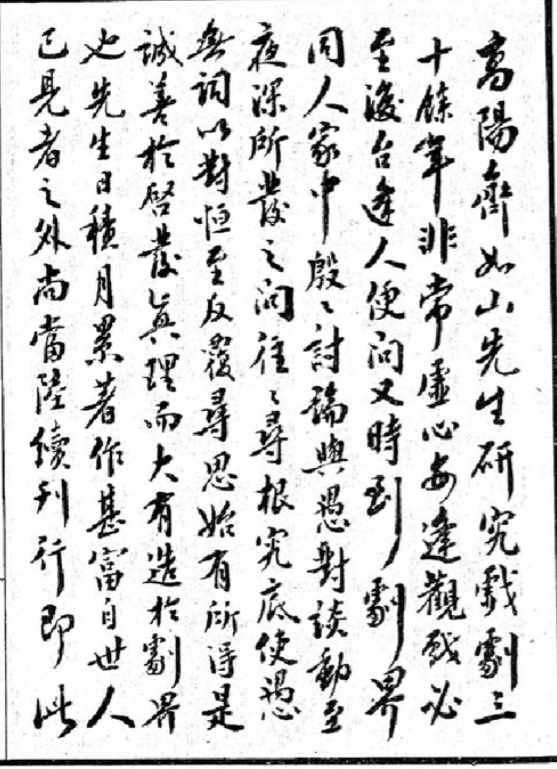 高陽齊如山先生研究戲劇三
十餘年非常虛心每逢觀戲必
至後台逢人便問又時到劇界
同人家中殷〻討論與愚對談動至
夜深所發之問往〻尋根究底使愚
無詞以對恒至反覆尋思始有所得是
誠善於啓發眞理而大有造於劇界
也先生日積月累著作甚富自世人
已見者之外尚當陸續刊行即此